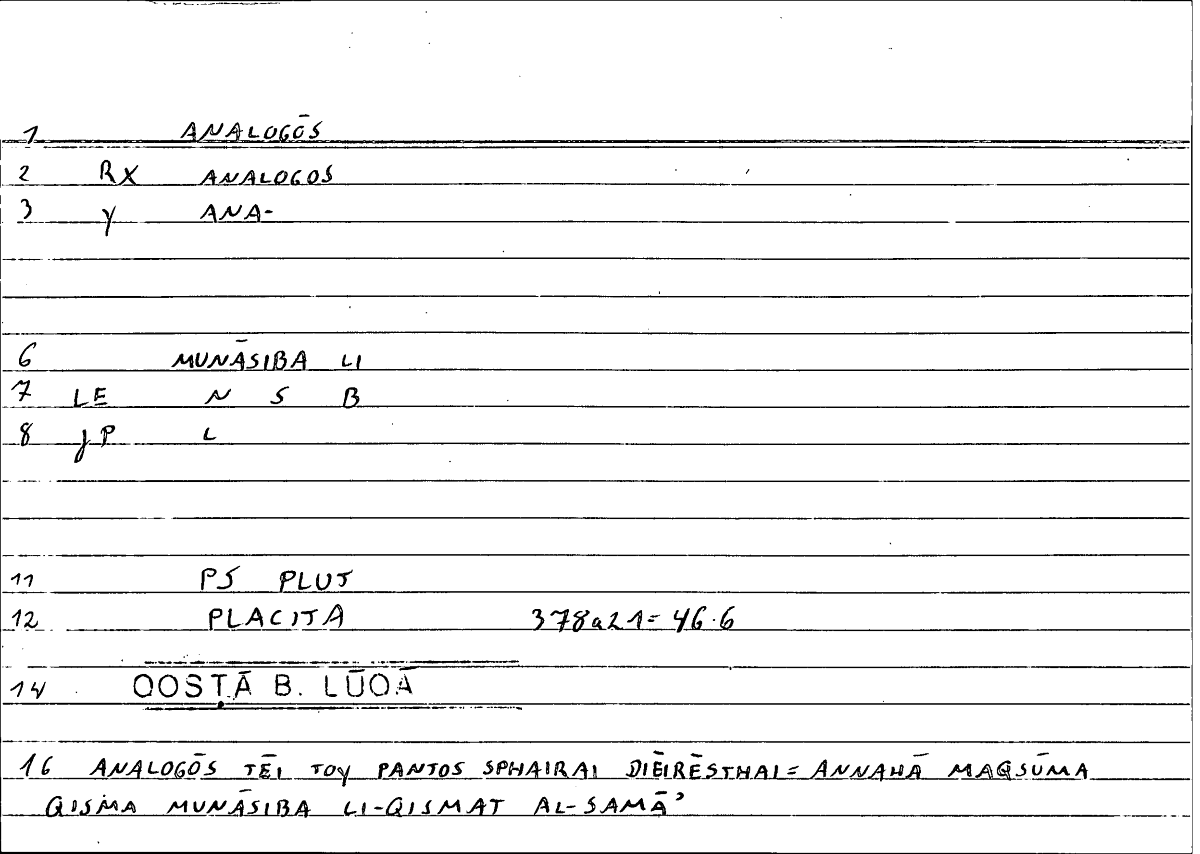 1 ANALOGŌS
2 RX ANALOGOS
3 γ ANA-
6 MUNĀSIBA LI
7 LE N S B
8 JP L
11 PS PLUT
12 PLACITA 378a21=46.6
14 QOSṬĀ B. LŪQĀ
16 ANALOGŌS TĒI TOY PANTOS SPHAIRAI DIĒIRĒSTHAI = ANNAHĀ MAQSŪMA
QISMA MUNĀSIBA LI-QISMAT AL-SAMĀʾ